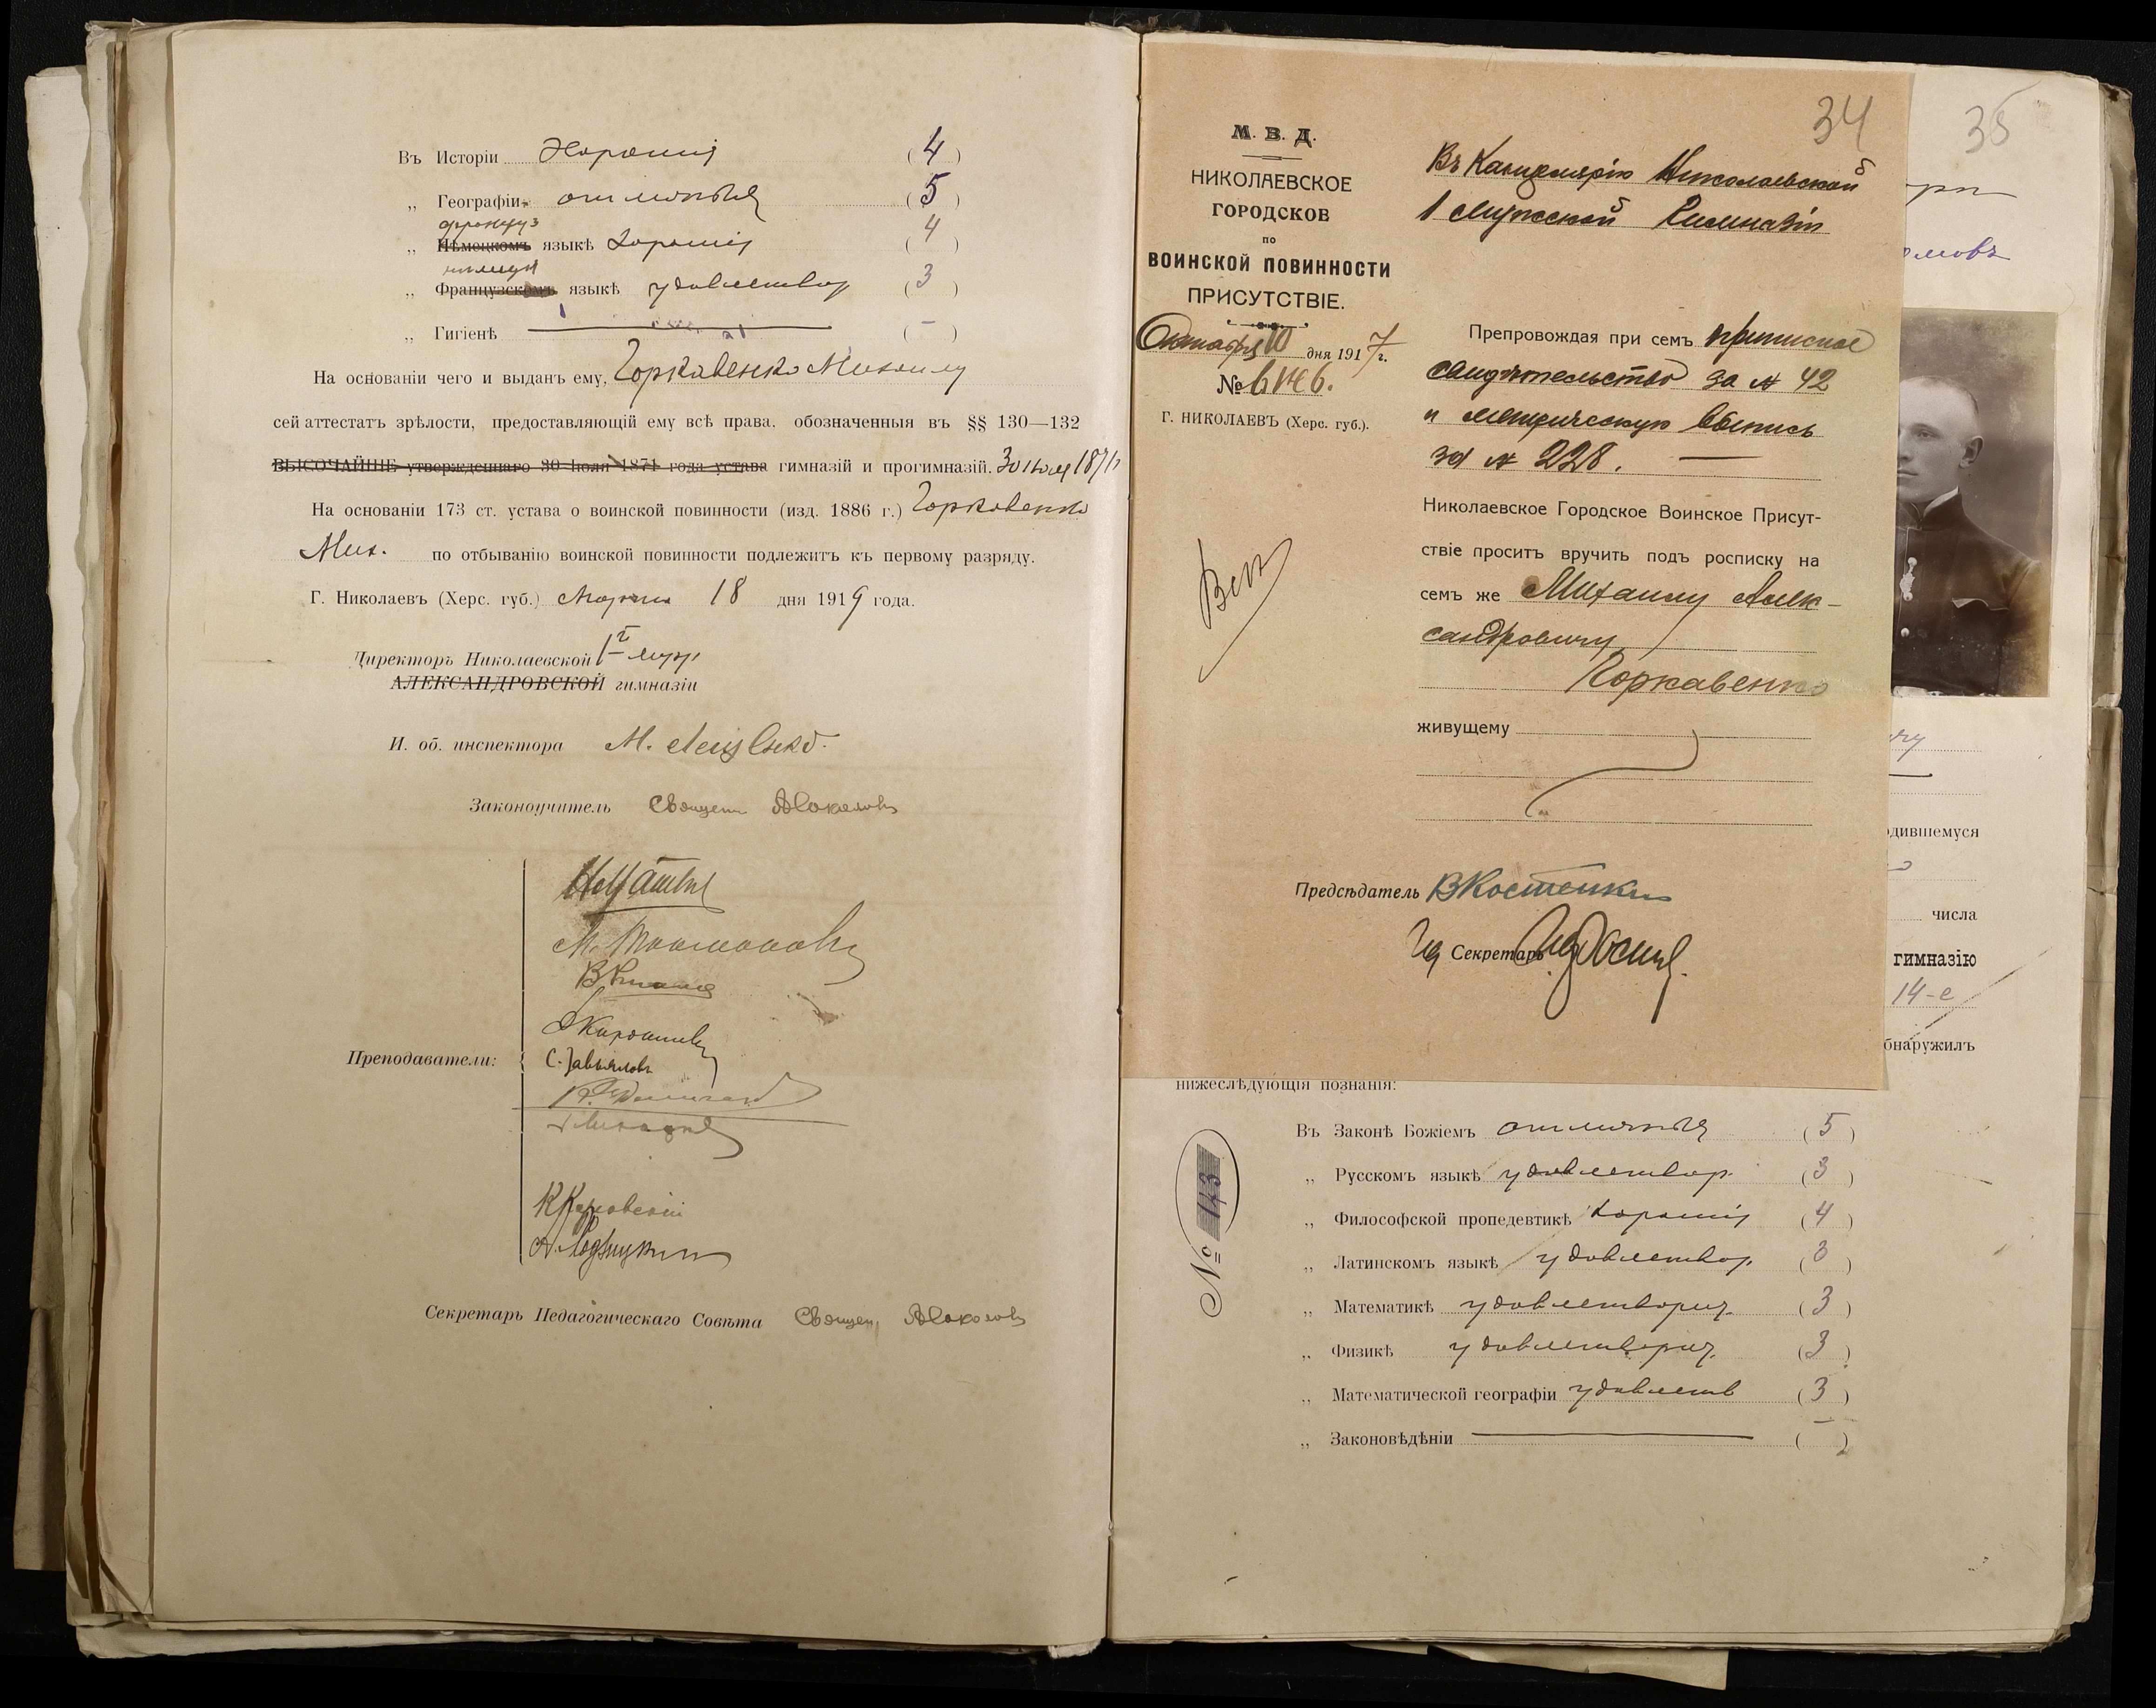 Въ Исторіи хорошія (4)
„ Географіи отличныя (5)
француз
„ Нѣмецкомъ языкѣ хорошія (4)
немецк
„ Французскомъ языкѣ удовлетвор (3)
„ Гигіенѣ (—)
На основаніи чего и выданъ ему, Горкавенко Михаилу
сей аттестатъ зрѣлости, предоставляющій ему всѣ права, обозначенныя въ §§ 130—132
ВЫСОЧАЙШЕ утвержденнаго 30 Іюля 1871 года устава гимназій и прогимназій. 30 Іюля 1871
На основаніи 173 ст. устава о воинской повинности (изд. 1886 г.) Горкавенко
Мих. по отбыванію воинской повинности подлежитъ къ первому разряду.
Г. Николаевъ (Херс. губ.) Марта 18 дня 1919 года.
Директоръ Николаевской 1й муж.
АЛЕКСАНДРОВСКОЙ гимназіи
И. об. инспектора М.
Законоучитель Священ
Преподаватели:
С. Завьяловъ
Секретарь Педагогическаго Совѣта Священ.
34
М. В. Д.
НИКОЛАЕВСКОЕ
ГОРОДСКОЕ
по
ВОИНСКОЙ ПОВИННОСТИ
ПРИСУТСТВІЕ.
Октября 10 дня 1917 г.
№
Г. НИКОЛАЕВЪ (Херс. губ.).
Въ Канцелярію Николаевской
1 мужской Гимназіи
Препровождая при семъ приписное
свидѣтельство за № 42
и метрическую выпись
за № 228.
Николаевское Городское Воинское Присут-
ствіе проситъ вручить подъ росписку на
семъ же Михаилу Алек-
сандровичу
Горкавенко
живущему
Предсѣдатель В Костенко
Секретарь
35
дившемуся
числа
гимназію
14-е
бнаружилъ
нижеслѣдующія познанія:
№ 143
Въ Законѣ Божіемъ отличныя (5)
„ Русскомъ языкѣ удовлетвор. (3)
„ Философской пропедевтикѣ хорошія (4)
„ Латинскомъ языкѣ удовлетвор. (3)
„ Математикѣ удовлетворит. (3)
„ Физикѣ удовлетворит. (3)
„ Математической географіи удовлетв (3)
„ Законовѣдѣніи (—)